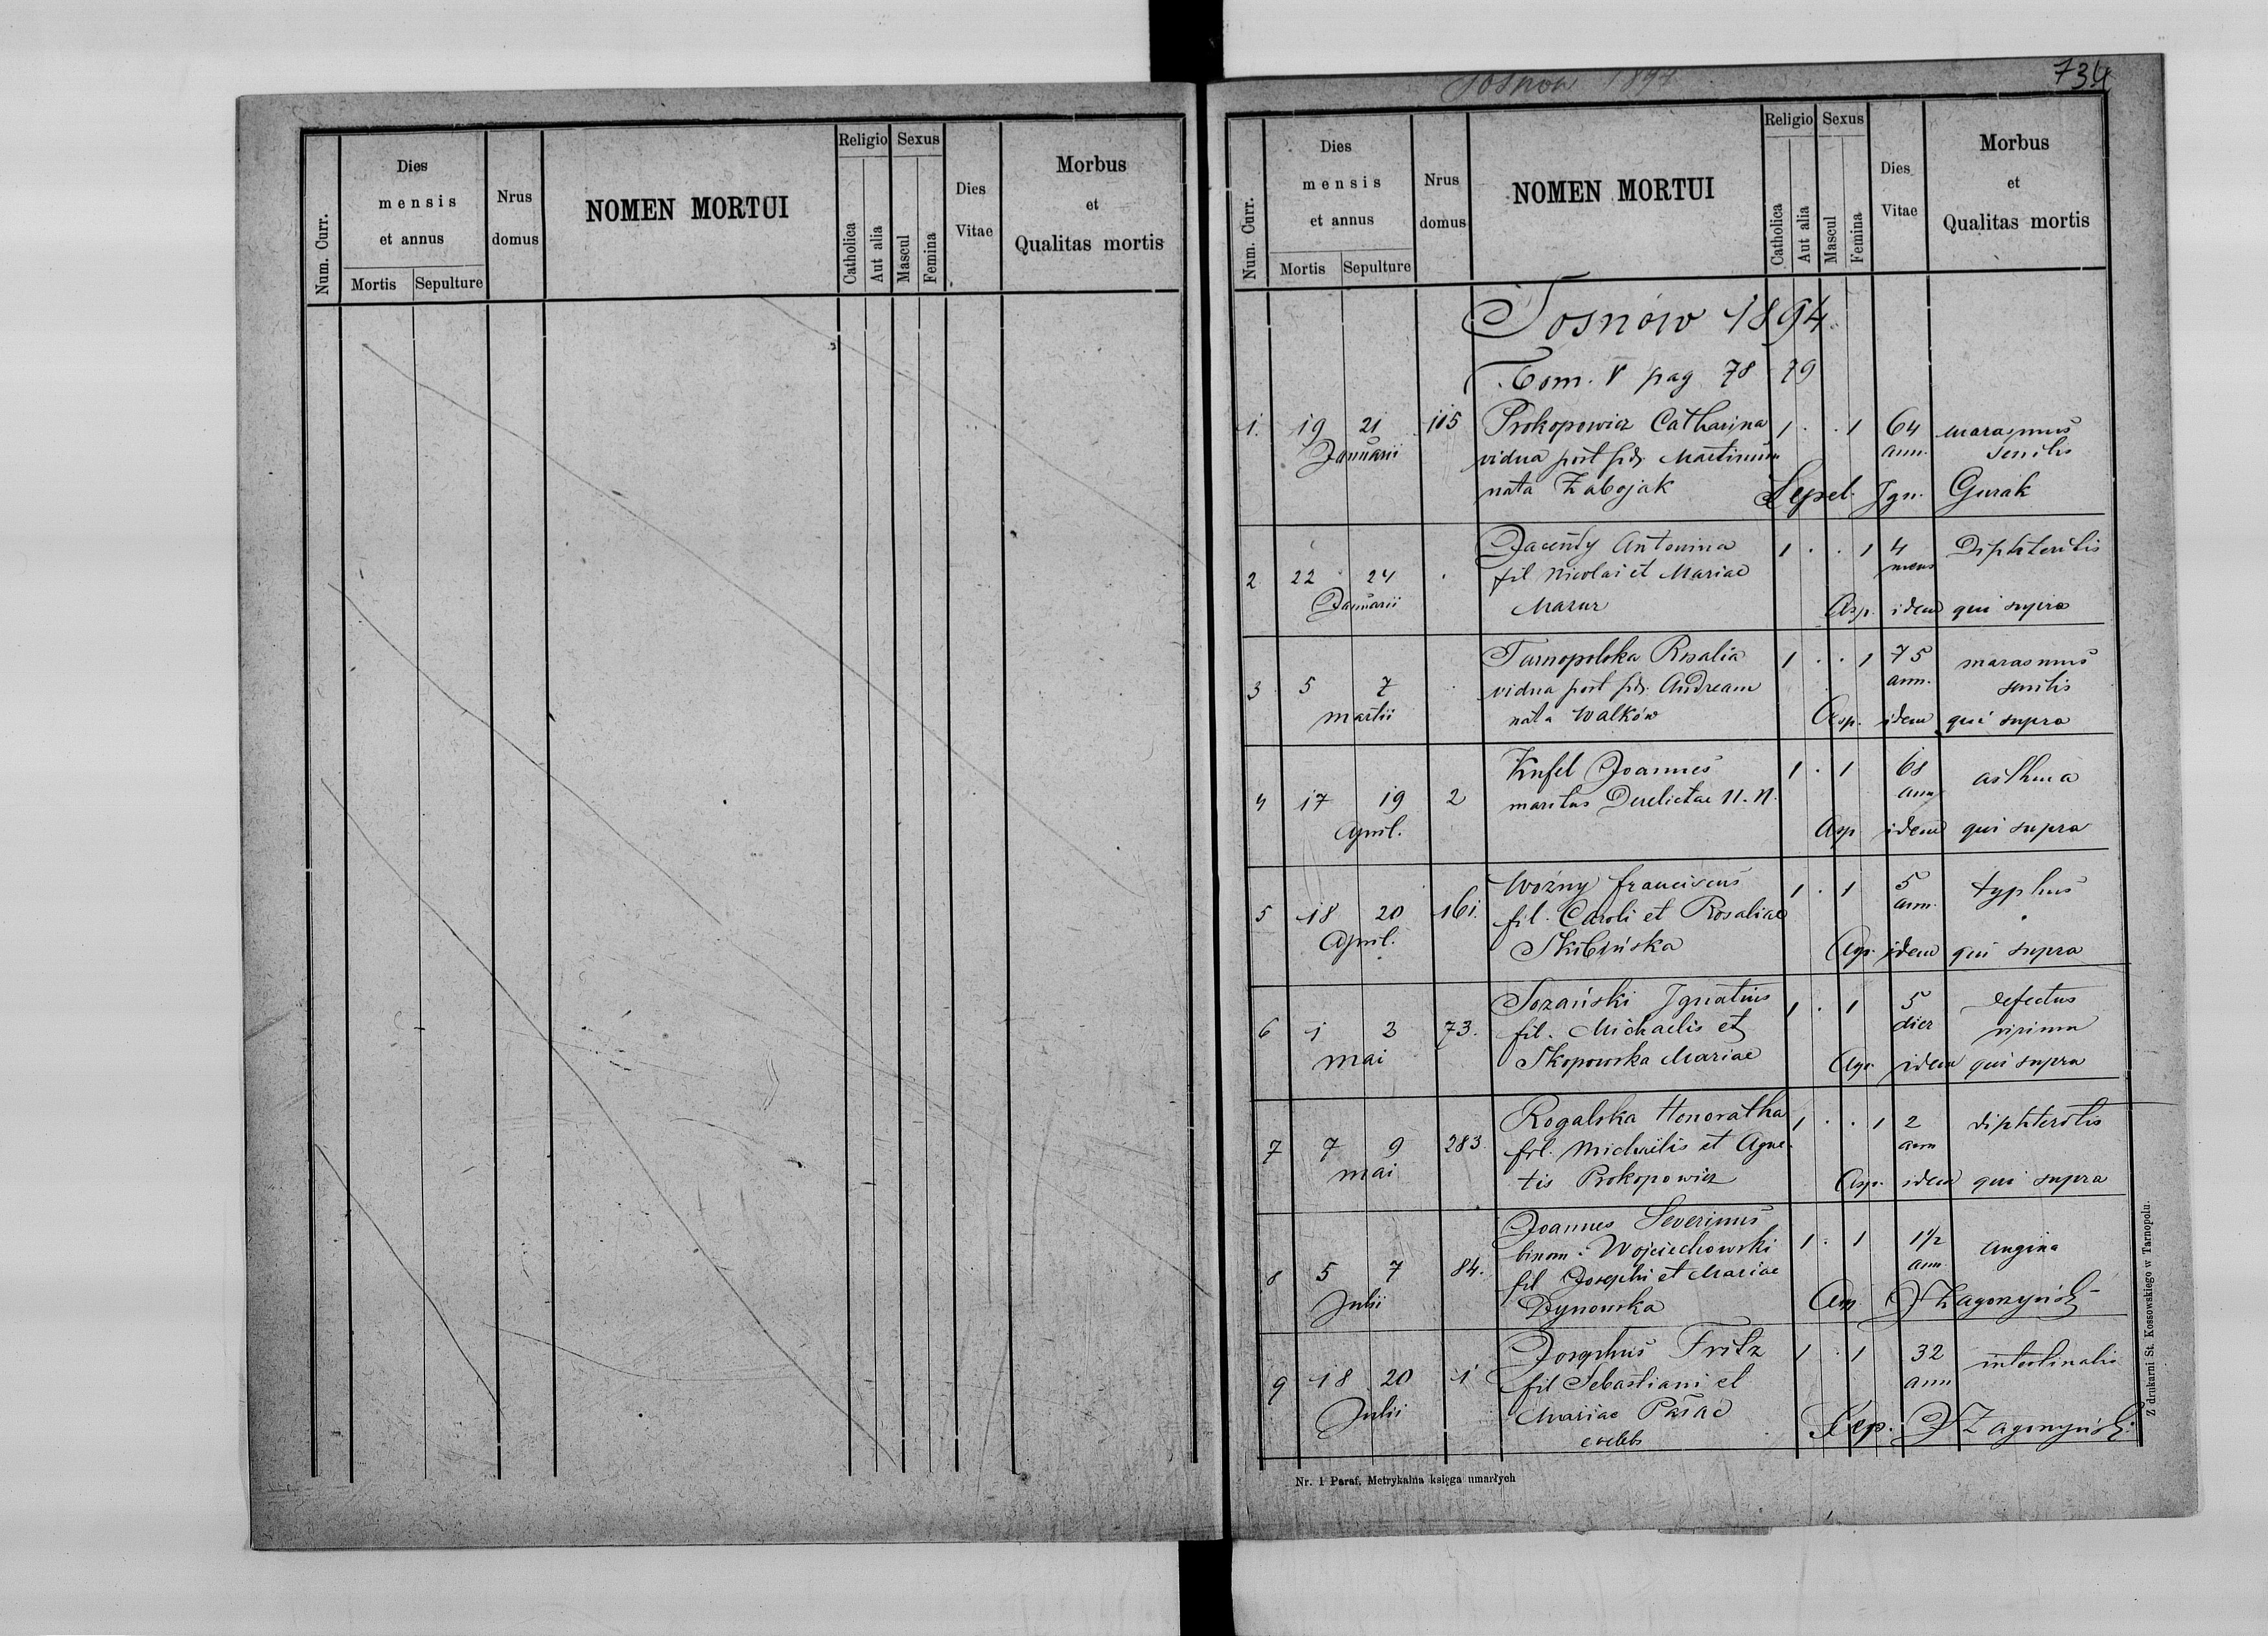 Num. Curr.
Dies
mensis
et annus
Mortis Sepulture
Nrus
domus
NOMEN MORTUI
Religio
Catholica
Aut alia
Sexus
Mascul
Femina
Dies
Vitae
Morbus
et
Qualitas mortis
Sosnow 1894
734
Num. Curr.
Dies
mensis
et annus
Mortis Sepulture
Nrus
domus
NOMEN MORTUI
Religio
Catholica
Aut alia
Sexus
Mascul
Femina
Dies
Vitae
Morbus
et
Qualitas mortis
Sosnów 1894.
Tom. V pag 78 79
1. 19 21 115 Prokopowicz Catharina 1 . . 1 64 marasmus
Januarii vidua post Martinum ann. senilis
nata Zabojak Sepel. Ign. Gurak
2 22 24 . Jacenty Antonina 1 . . 1 4 Diphteritis
Januarii fil Nicolai et Mariae mens
Mazur Asp. idem qui supra
3 5 7 . Tarnopolska Rosalia 1 . . 1 75 marasmus
martii vidua post Andream ann. senilis
nata Walków Asp. idem qui supra
4 17 19 2 Knfel Joannes 1 . 1 68 asthma
April. maritus Derelictae N. N. ann
Asp idem qui supra
5 18 20 161. Woźny Franciscus 1 . 1 5 typhus
April. fil. Caroli et Rosaliae ann.
Skibińska Asp. idem qui supra
6 1 3 73. Sozański Ignatius 1 . 1 5 defectus
mai fil. Michaelis et dier virium
Skopowska Mariae Asp. idem qui supra
7 7 9 283 Rogalska Honoratha 1 . . 1 2 diphteritis
mai fil. Michaelis et Agne- ann
tis Prokopowicz Asp. idem qui supra
8 5 7 84. Joannes Severinus 1 . 1 1 1/2 angina
Julii binom. Wojciechowski ann.
fil Josephi et Mariae
Dynowska Asp J Zagorzyński
9 18 20 1 Josephus Fritz 1 . 1 32 intestinalis
Julii fil Sebastiani et ann
Mariae
coelebs Sep. J Zagorzyński
Nr. 1 Paraf. Metrykalna księga umarłych
Z drukarni St. Kossowskiego w Tarnopolu.